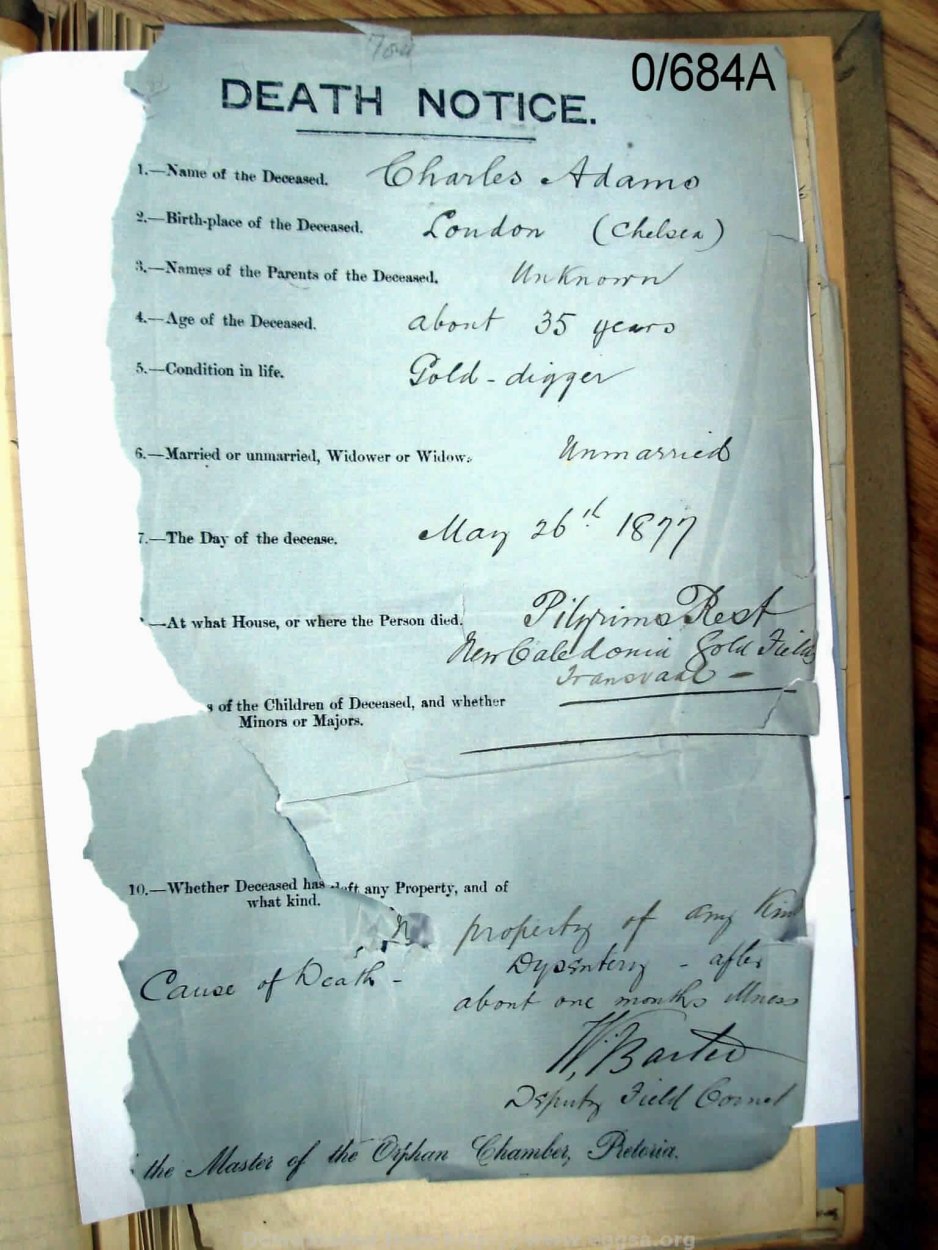 0/684A
DEATH NOTICE.
1.—Name of the Deceased. Charles Adams
2.—Birth-place of the Deceased. London (Chelsea)
3.—Names of the Parents of the Deceased. Unknown
4.—Age of the Deceased. about 35 years
5.—Condition in life. Gold-digger
6.—Married or unmarried, Widower or Widow. Unmarried
7.—The Day of the decease. May 26th 1877
—At what House, or where the Person died. Pilgrims Rest
New Caledonia Gold Fields
Transvaal —
s of the Children of Deceased, and whether
Minors or Majors.
10.—Whether Deceased has left any Property, and of
what kind.
property of any Kind
Cause of Death - Dysentery - after
about one months illness
Deputy Field Cornet
the Master of the Orphan Chamber, Pretoria.